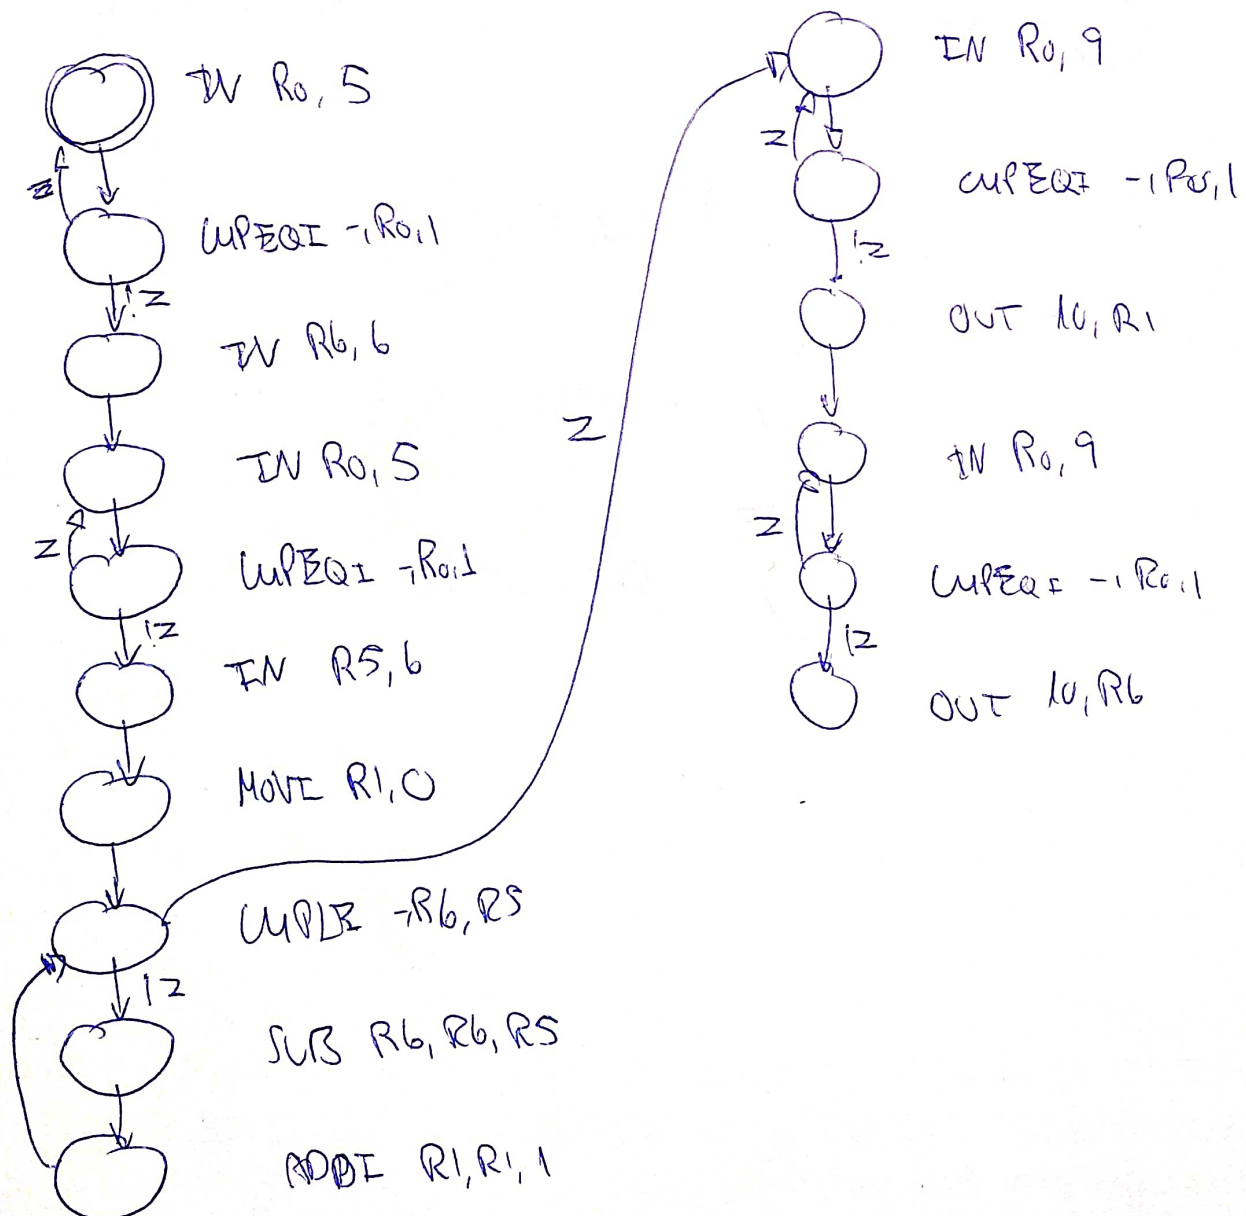 IN R0, 5
Z
CMPEQI -, R0, 1
!Z
IN R6, 6
IN R0, 5
Z
CMPEQI -, R0, 1
!Z
IN R5, 6
MOVI R1, 0
CMPLE -, R6, R5
!Z
SUB R6, R6, R5
ADDI R1, R1, 1
Z
IN R0, 9
Z
CMPEQI -, R0, 1
!Z
OUT 10, R1
IN R0, 9
Z
CMPEQI -, R0, 1
!Z
OUT 10, R6